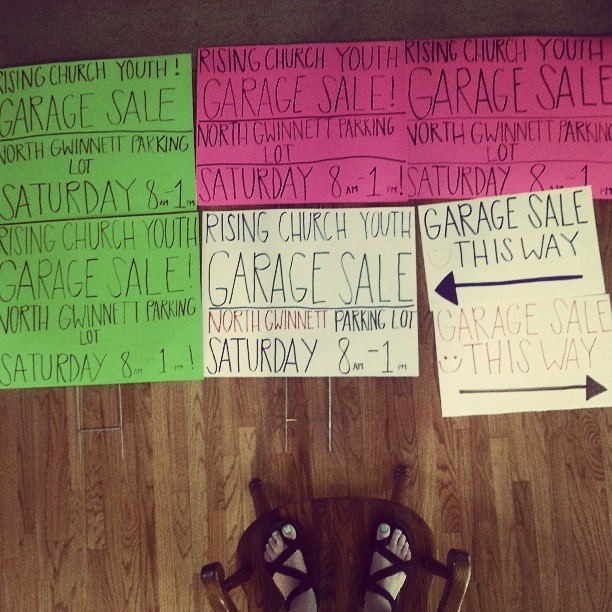 RISING CHURCH YOUTH!
GARAGE SALE
NORTH GWINNETT PARKING
LOT
SATURDAY 8 AM - 1 PM
RISING CHURCH YOUTH
GARAGE SALE!
NORTH GWINNETT PARKING
LOT
SATURDAY 8 AM - 1 PM!
RISING CHURCH YOUTH
GARAGE SALE
NORTH GWINNETT PARKING
LOT
SATURDAY 8 AM - 1 PM
RISING CHURCH YOUTH
GARAGE SALE!
NORTH GWINNETT PARKING
LOT
SATURDAY 8 AM - 1 PM!
RISING CHURCH YOUTH
GARAGE SALE
NORTH GWINNETT PARKING LOT
SATURDAY 8 AM - 1 PM
GARAGE SALE
THIS WAY
GARAGE SALE
THIS WAY